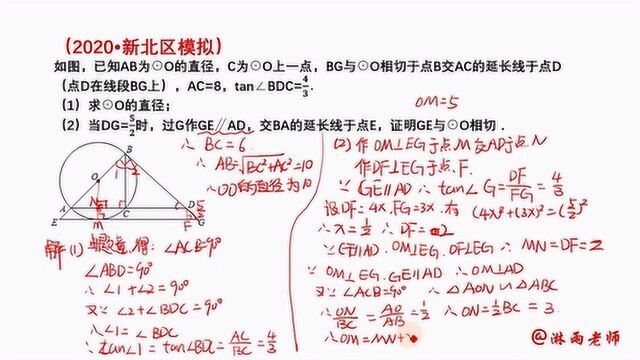 （2020•新北区模拟）
如图，已知AB为⊙O的直径，C为⊙O上一点，BG与⊙O相切于点B交AC的延长线于点D
（点D在线段BG上），AC=8，tan∠BDC=4/3．
（1）求⊙O的直径；
（2）当DG=5/2时，过G作GE∥AD，交BA的延长线于点E，证明GE与⊙O相切．
OM=5
∴ BC=6
∴ AB=√BC²+AC²=10
∴⊙O的直径为10
B
1
2
O
A
N
C
D
E
M
F
G
解(1) 由题意得: ∠ACB=90°
∠ABD=90°
∴ ∠1+∠2=90°
又∵ ∠2+∠BDC=90°
∴ ∠1=∠BDC
∴ tan∠1=tan∠BDC=AC/BC=4/3
(2) 作OM⊥EG于点M交AD于点N
作DF⊥EG于点F.
∵ GE∥AD ∴ tan∠G=DF/FG=4/3
设DF=4x, FG=3x. 有 (4x)²+(3x)²=(5/2)²
∴ x=1/2 ∴ DF=2
∵GE∥AD. OM⊥EG. DF⊥EG ∴ MN=DF=2
∵ OM⊥EG. GE∥AD ∴ OM⊥AD
又∵ ∠ACB=90° ∴ △AON∽△ABC
∴ ON/BC=AO/AB=1/2 ∴ ON=1/2BC=3
∴OM=MN+
@淋雨老师